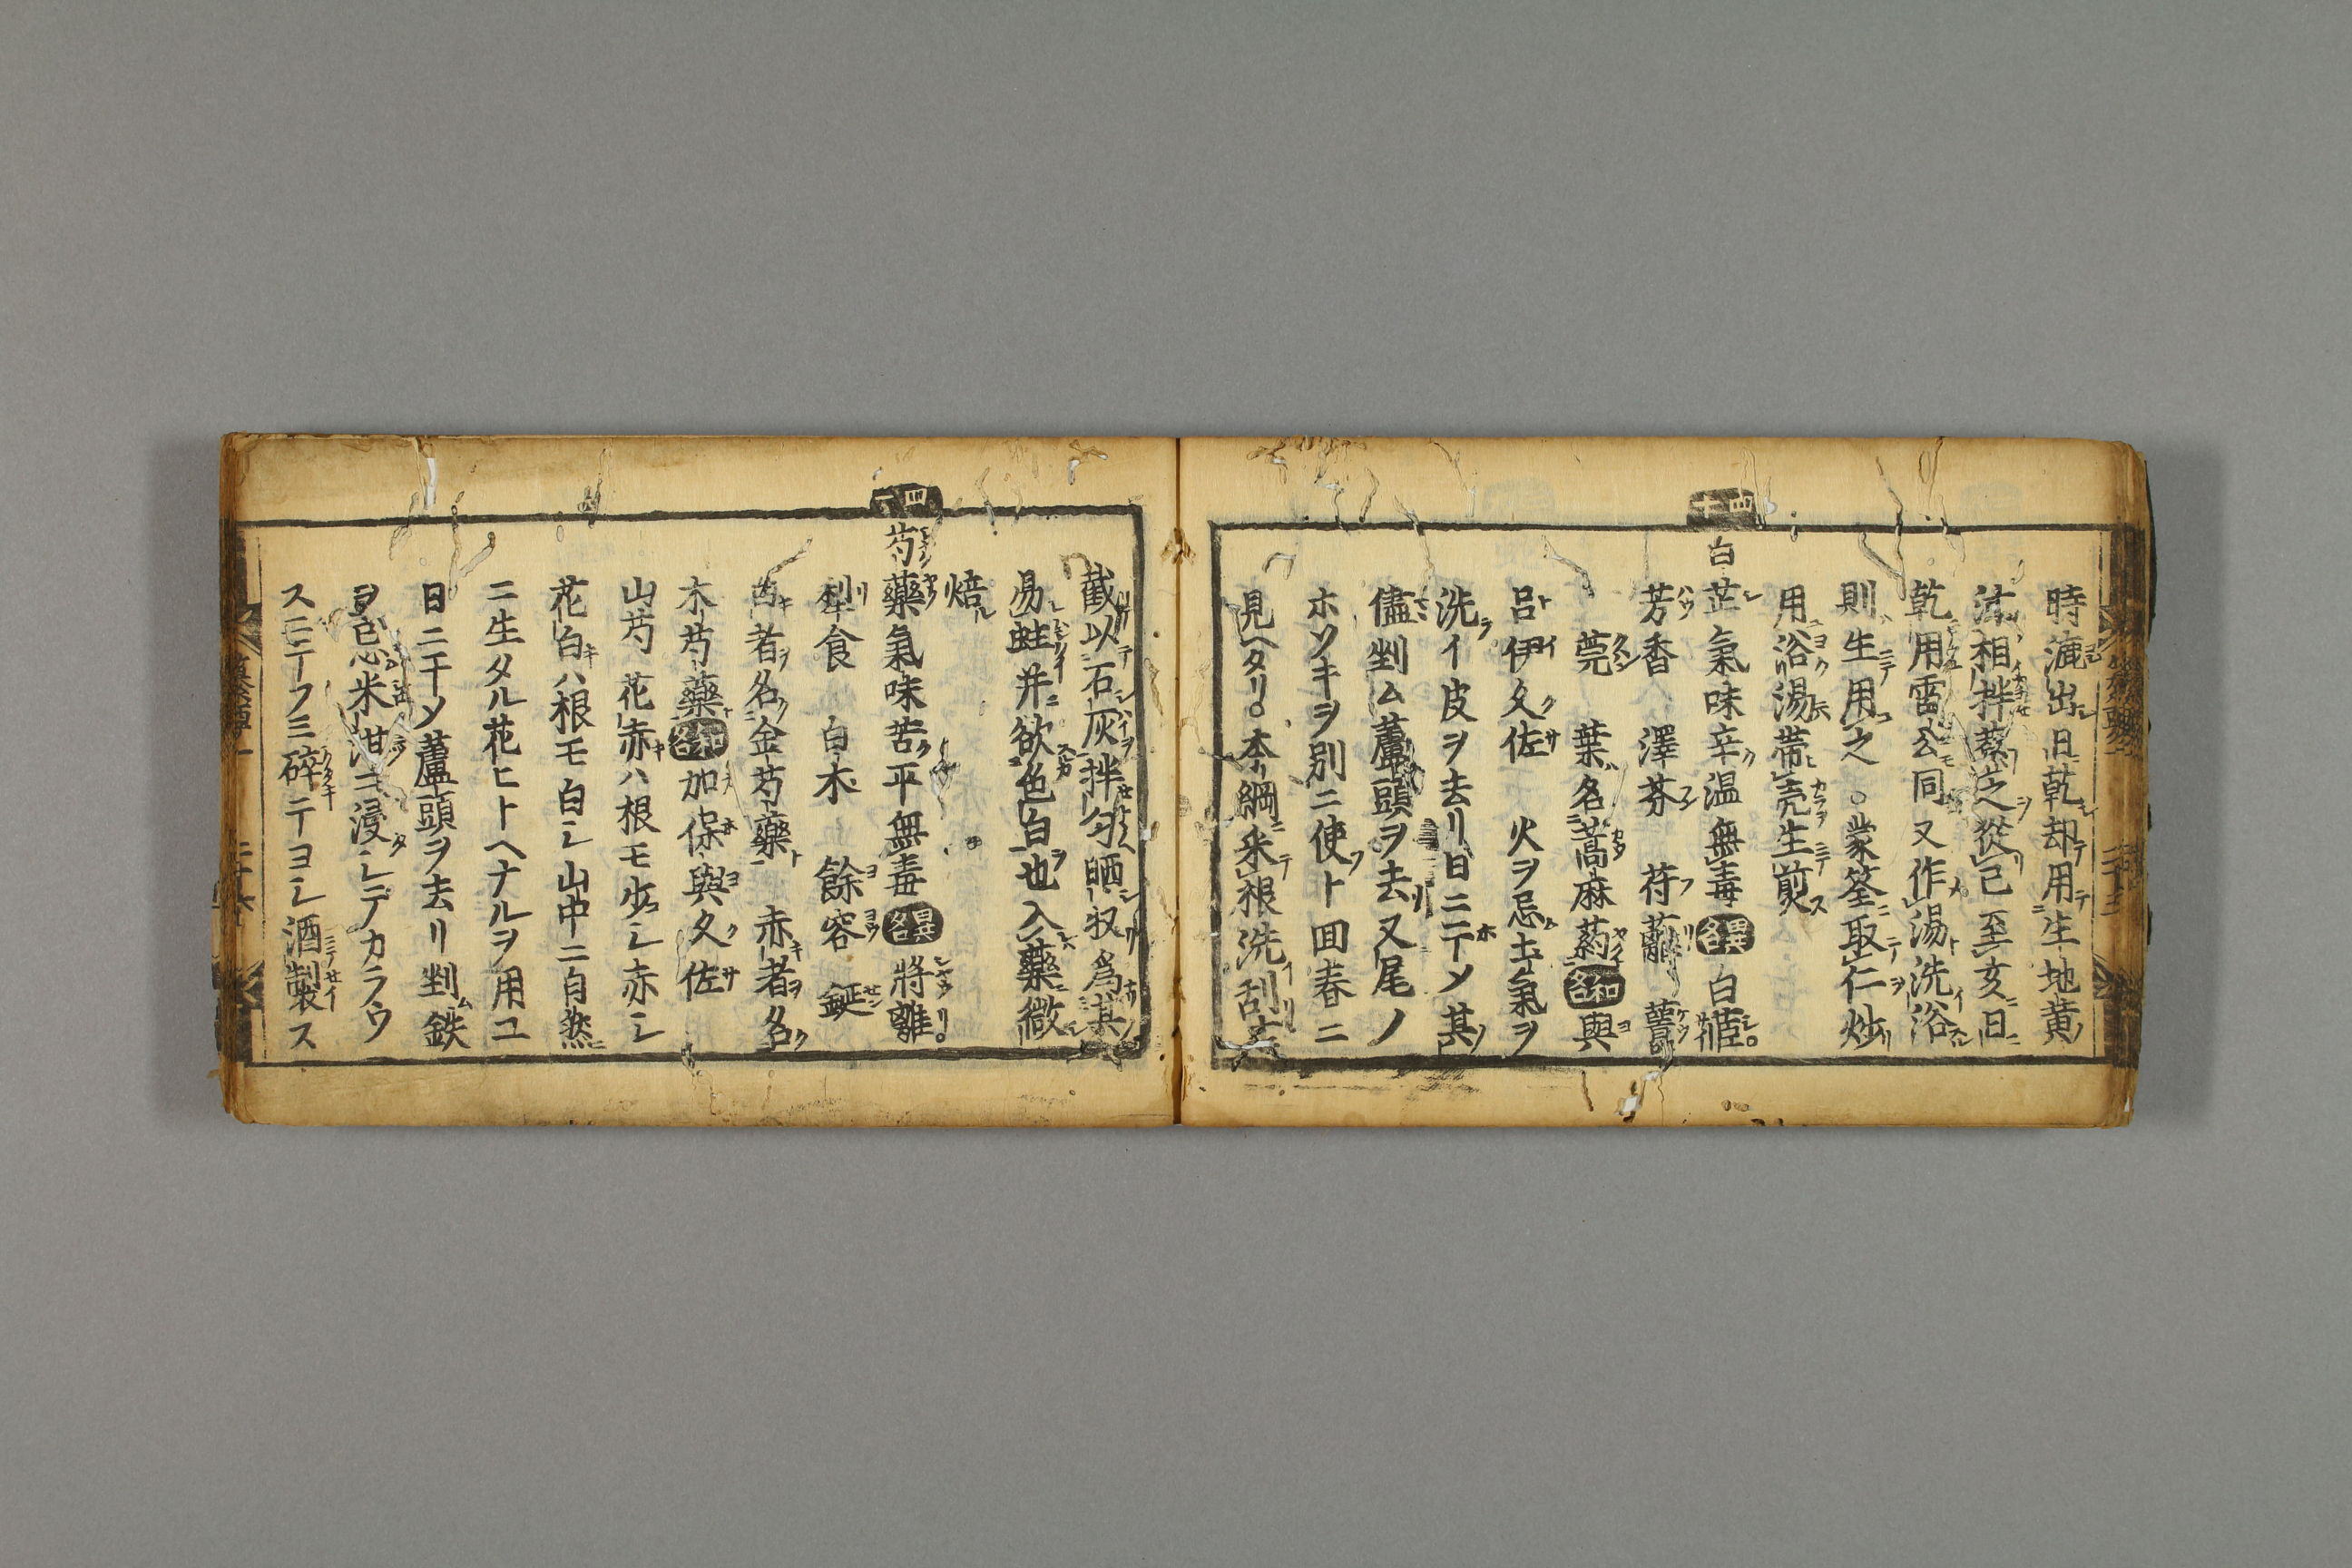 時漉出日乾却用生地黄
汁相拌蒸之從巳至亥日
乾用雷公同又作湯洗浴
則生用之○蒙筌取仁炒
用浴湯帯壳生煎
四十
白芷氣味辛温無毒異名白茝
芳香 澤芬 苻蘺 蘬
莞 葉名蒿麻葯和名與
呂伊久佐 火ヲ忌土氣ヲ
洗イ皮ヲ去リ日ニテ乄其
儘剉ム蘆頭ヲ去又尾ノ
ホソキヲ別ニ使ト回春ニ
見ヘタリ○本綱采根洗刮
截以石灰拌匀晒收爲其
易蛀并欲色白也入藥微
焙
四一
芍藥氣味苦平無毒異名將離
犁食 白木 餘容 鋋
白者名金芍藥 赤者名
木芍藥和名加保與久佐
山芍花赤ハ根モ少シ赤シ
花白ハ根モ白シ山中ニ自然
ニ生タル花ヒトヘナルヲ用ユ
日ニ干乄蘆頭ヲ去リ剉鉄
ヲ忌米泔ニ浸シテカラウ
スニテフミ碎テヨシ酒製ス